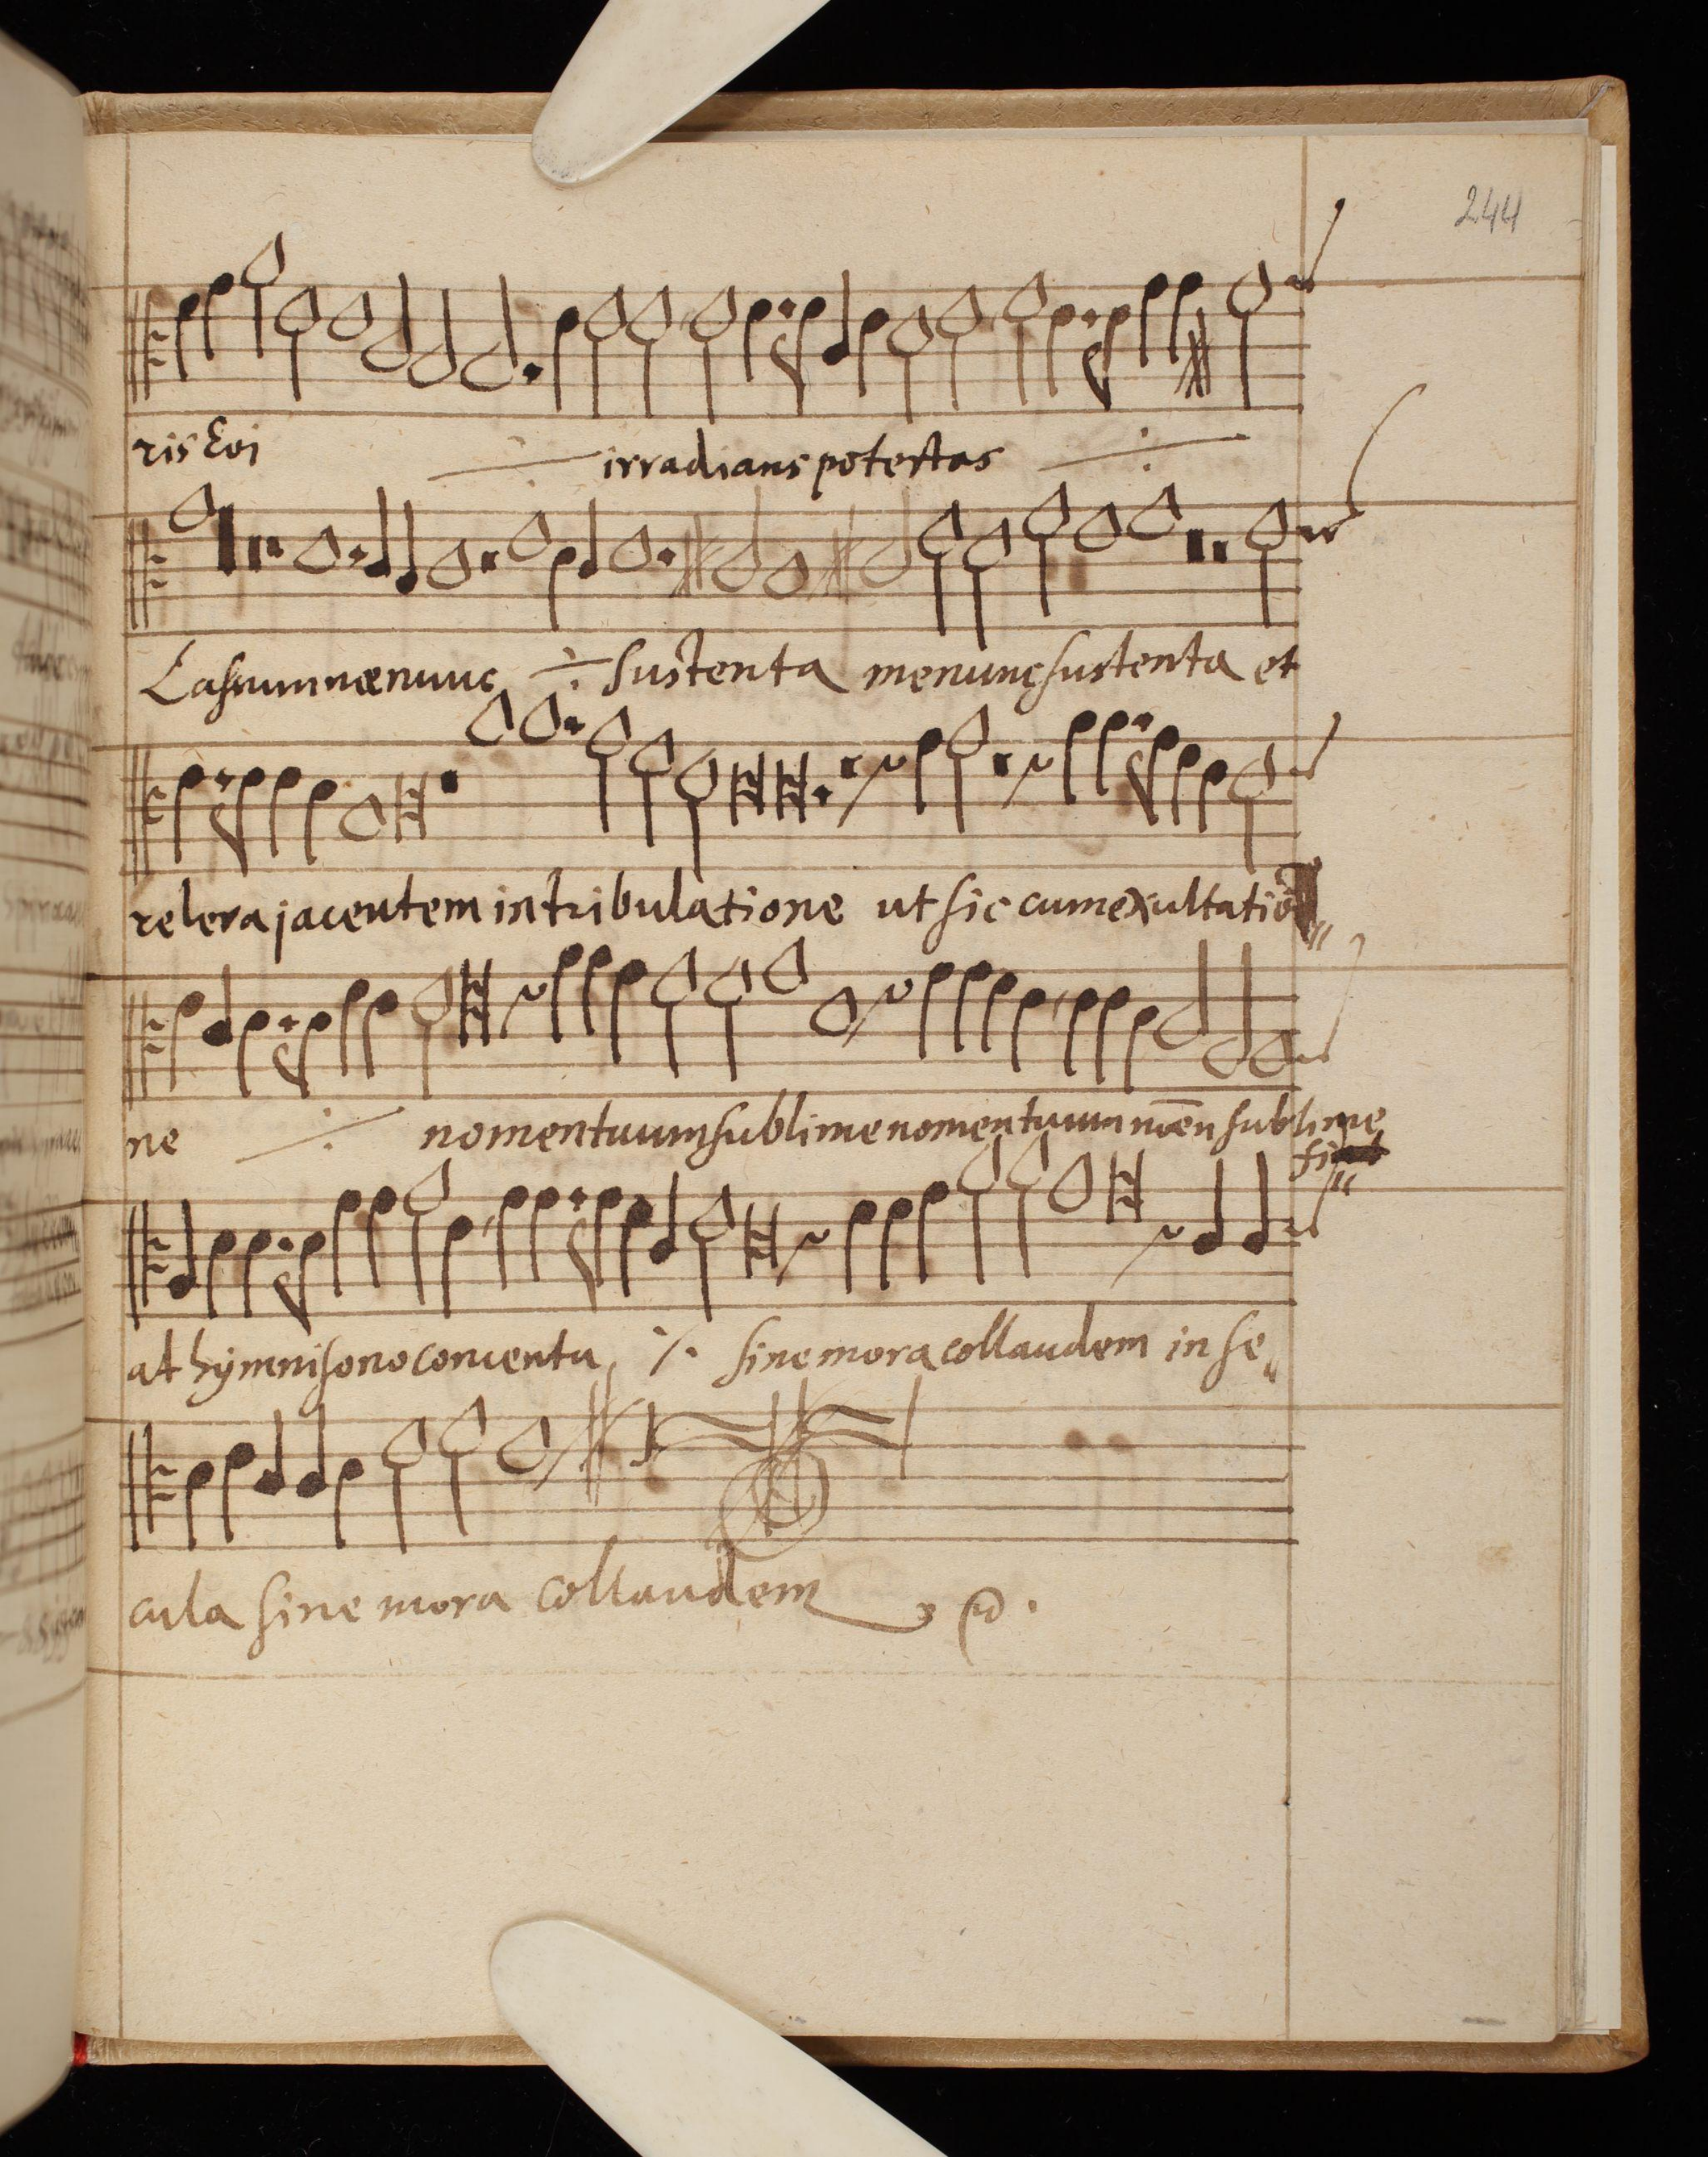 244
ris Eoi ÷ irradians potestas ÷
÷ sustenta me nunc sustenta et
releva jacentem in tribulatione ut sic cum exultatio„
ne ÷ nomen tuum sublime nomen tuum sublime
at hymnisono concentu, ÷ sine mora collaudem in se„
cula sine mora collaudem